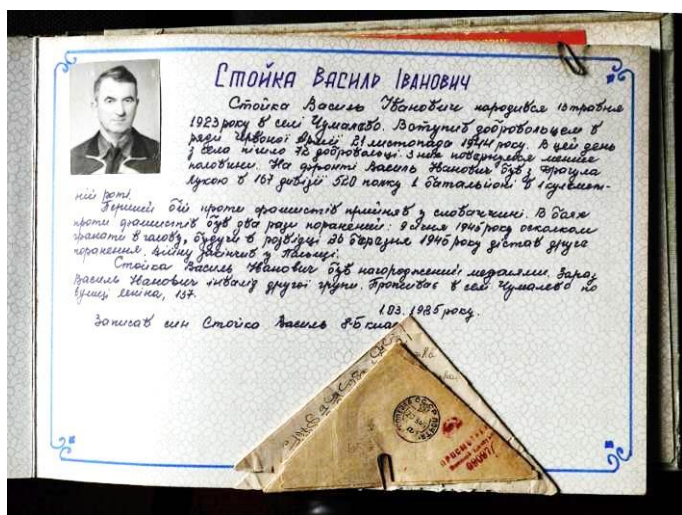 Стойка Василь Іванович
Стойка Василь Іванович народився 15 травня
1923 року в селі Чумальово. Вступив добровольцем в
ряди Червоної Армії 21 листопада 1944 року. В цей день
з села пішло 72 добровольці. З них повернулося менше
половини. На фронті Василь Іванович був з
Лукою в 167 дивізії 520 полку 1 батальйоні в 1 кулемет-
ній роті.
Перший бій проти фашистів прийняв у Словаччині. В боях
проти фашистів був два рази поранений: 9 січня 1945 року осколком
гранати в голову, будучи в розвідці 26 березня 1945 року дістав друге
поранення. Війну закінчив у
Стойка Василь Іванович був нагороджений медалями. Зараз
Василь Іванович інвалід другої групи. Проживає в селі Чумальово по
вулиці Леніна, 137.
1.03.1985 року.
Записав син Стойко Василь 8-Б клас